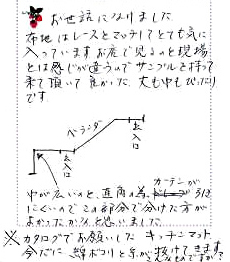 お世話になりました
布地はレースとマッチしてとても気に
入っています お店で見るのと現場
とは感じが違うので サンプルを持って
来て頂いて良かった、丈も巾もぴったり
です。
ベランダ
出入口
出入口
カーテンが
巾が広いのと、直角の為、引き
にくいので この部分で分けた方が
よかったかなと思いました
※ カタログでお願いした キッチンマット
今だに 綿ボコリと糸が抜けてきます